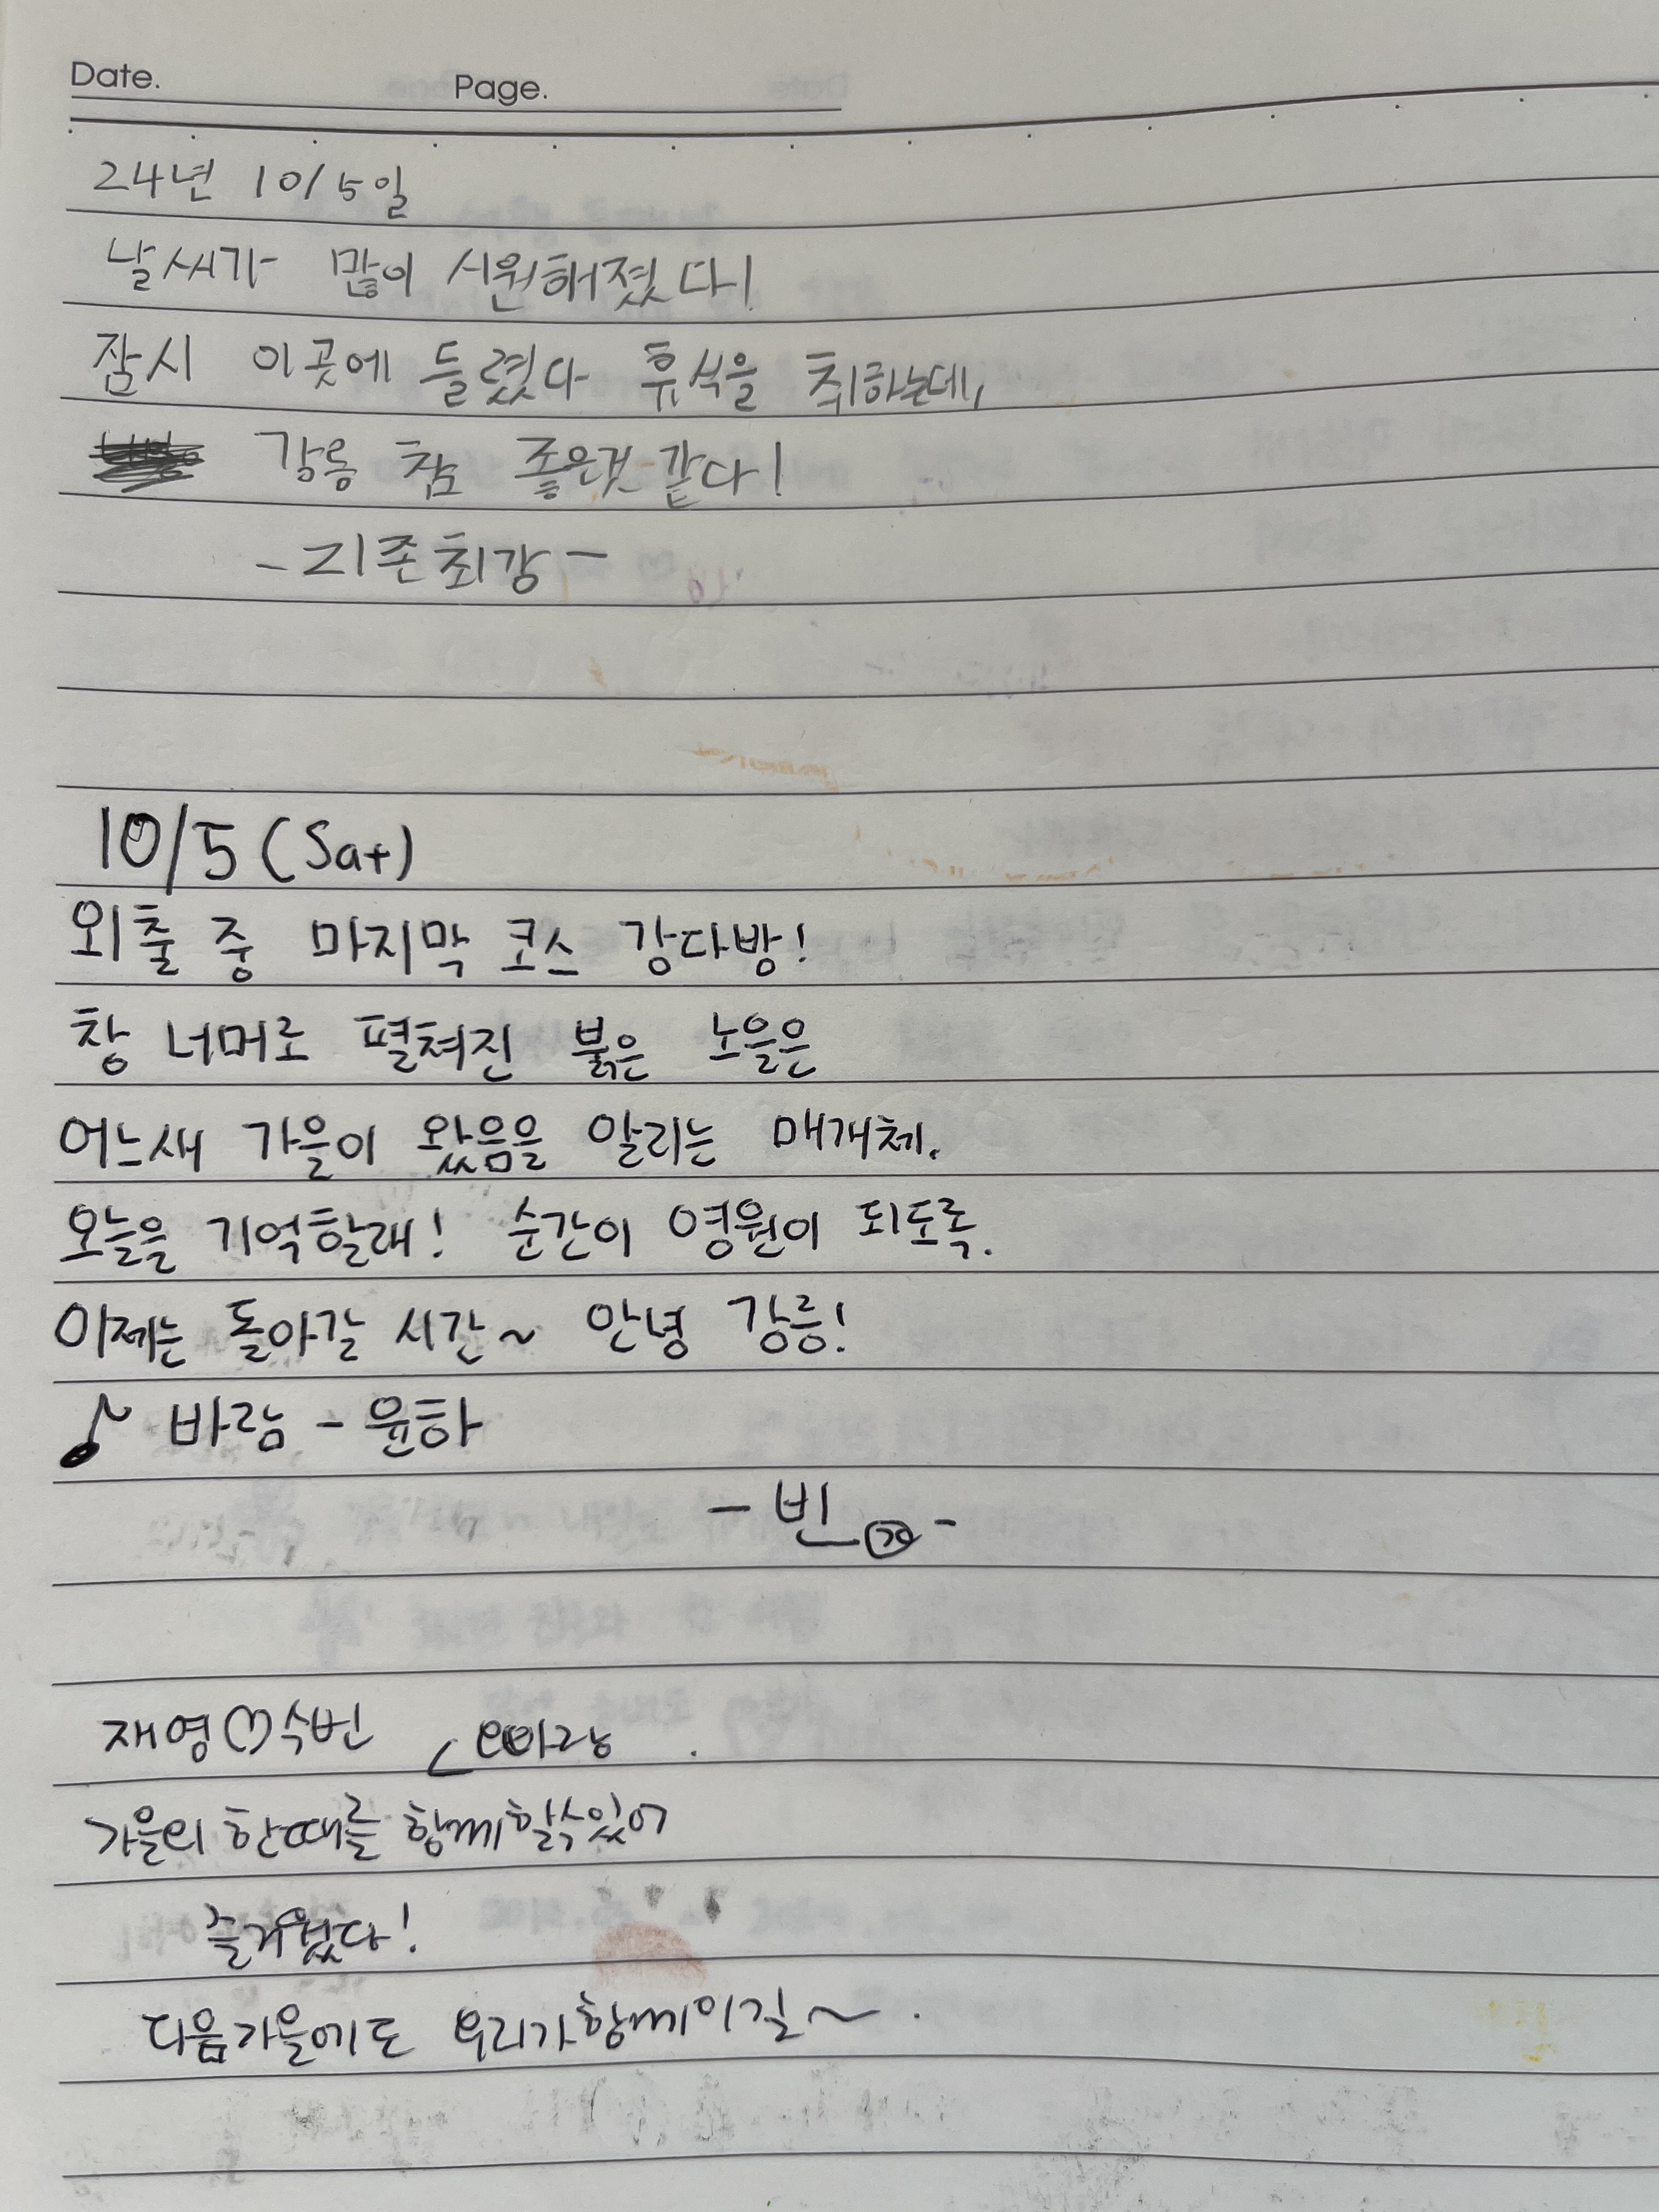 Date. Page.
24년 10/5일
날씨가 많이 시원해졌다!
잠시 이곳에 들렸다 휴식을 취하는데,
강릉 참 좋은것 같다!
- 지존최강 -
10/5 (Sat)
외출 중 마지막 코스 강다방!
창 너머로 펼쳐진 붉은 노을은
어느새 가을이 왔음을 알리는 매개체.
오늘을 기억할래! 순간이 영원이 되도록.
이제는 돌아갈 시간~ 안녕 강릉!
♪ 바람 - 윤하
- 빈 -
재영♡수빈
가을의 한때를 함께할수있어
즐거웠다!
다음가을에도 우리가함께이길~.